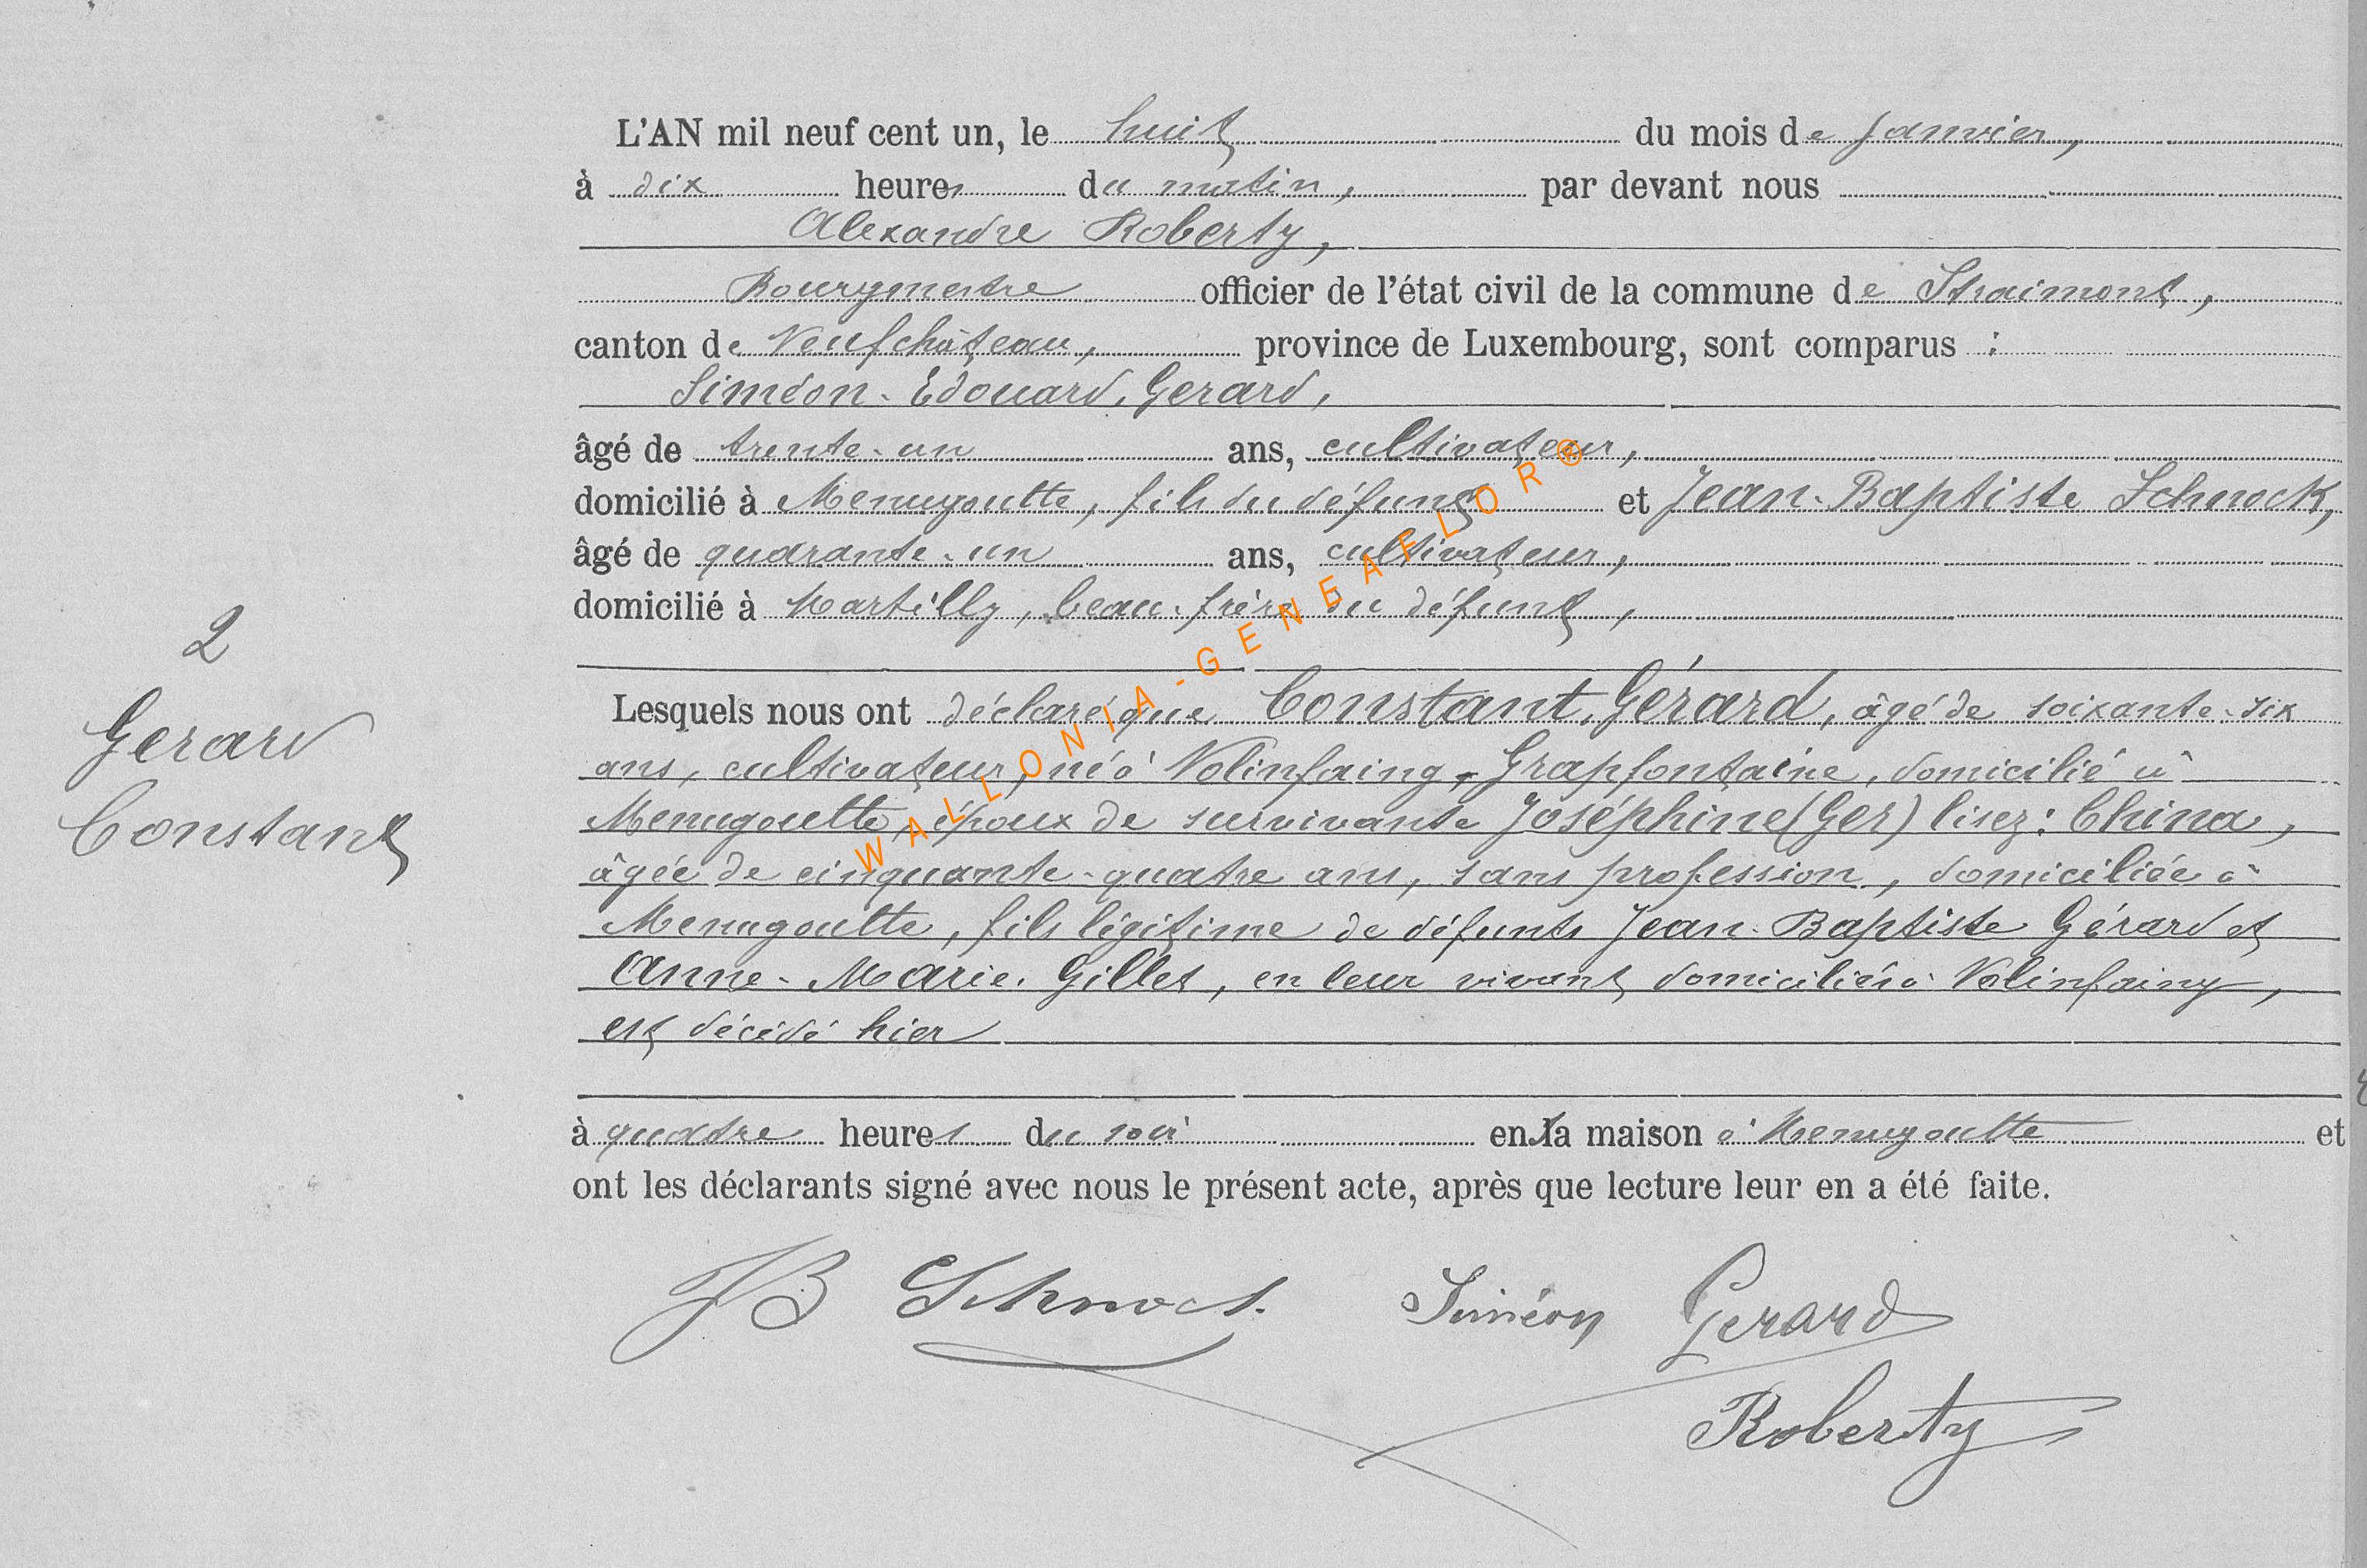 L'AN mil neuf cent un, le huit du mois de Janvier,
à dix heures du matin, par devant nous
Alexandre Roberty,
Bourgmestre officier de l'état civil de la commune de Straimont,
canton de Neufchâteau, province de Luxembourg, sont comparus :
Siméon-Edouard, Gerard,
âgé de trente-un ans, cultivateur,
domicilié à Menugoutte, fils du défunt et Jean-Baptiste Schnock,
âgé de quarante-un ans, cultivateur,
domicilié à Martilly, beau-frère du défunt,
2
Gerard
Constant
Lesquels nous ont déclaré que Constant, Gérard, âgé de soixante-six
ans, cultivateur, né à Volinfaing-Grapfontaine, domicilié à
Menugoutte, époux de survivante Joséphine (Ger) lisez: China,
âgée de cinquante-quatre ans, sans profession, domiciliée à
Menugoutte, fils légitime de défunts Jean-Baptiste Gérard et
Anne-Marie. Gillet, en leur vivant domiciliés à Volinfaing,
est décédé hier
à quatre heures du soir en la maison à Menugoutte et
ont les déclarants signé avec nous le présent acte, après que lecture leur en a été faite.
JB Schnock. Siméon Gerard
Roberty
WALLONIA-GENEAFLOR®